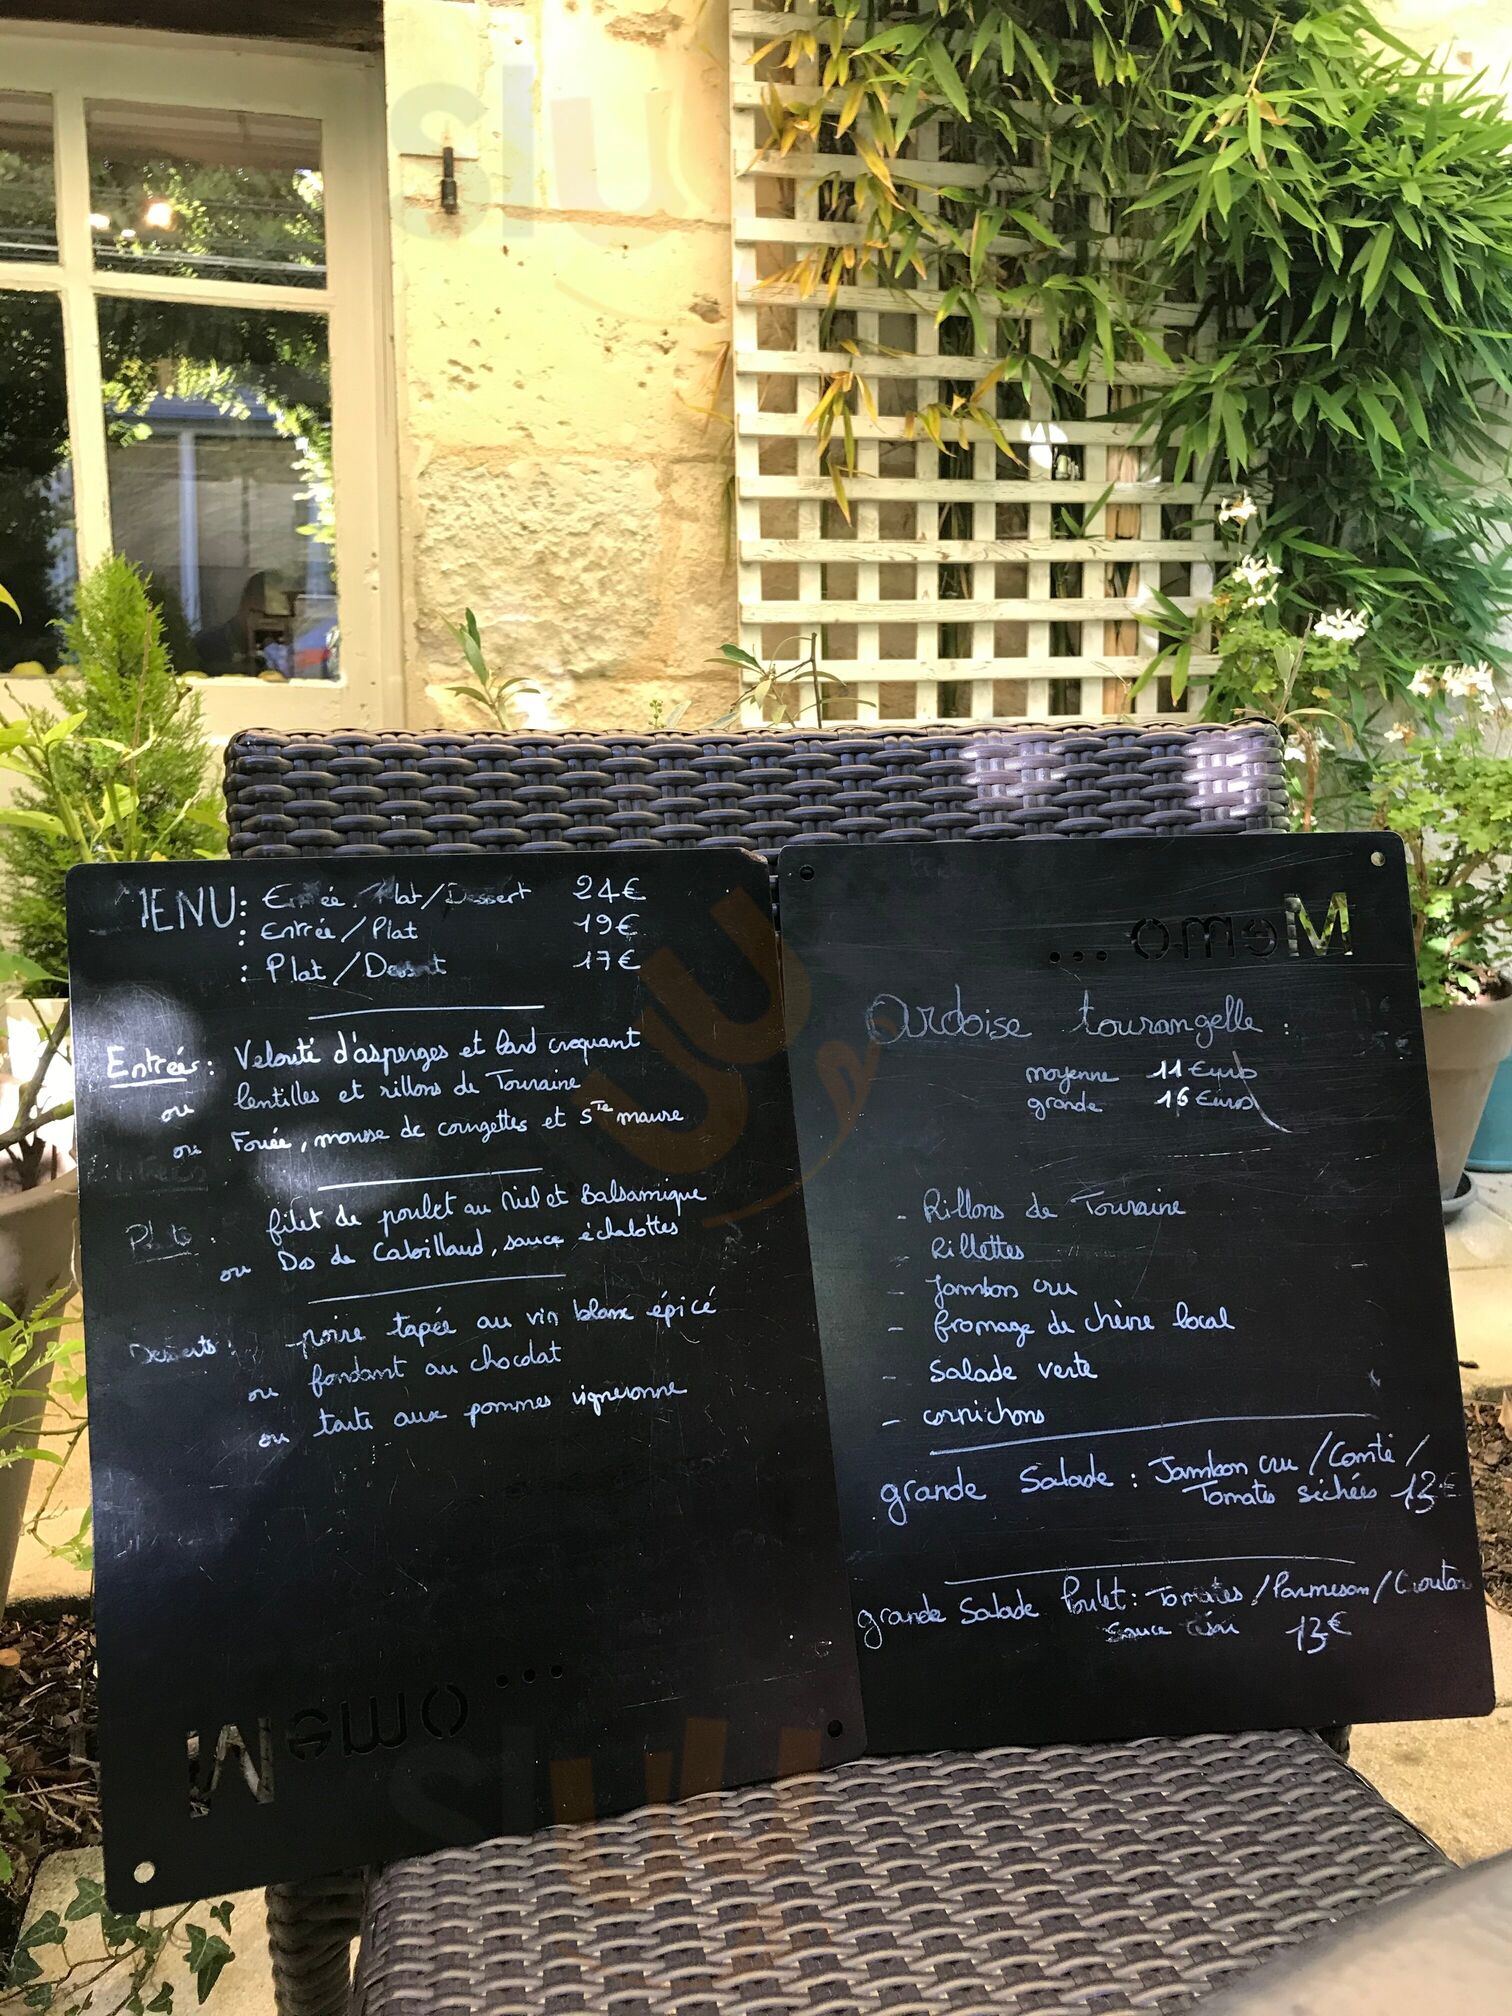 MENU : Entrée / Plat / Dessert 24€
: Entrée / Plat 19€
: Plat / Dessert 17€
Entrées : Velouté d'asperges et lard croquant
ou lentilles et rillons de Touraine
ou Fouée, mousse de courgettes et Ste maure
Plats : filet de poulet au Miel et Balsamique
ou Dos de Cabillaud, sauce échalottes
Desserts : poire tapée au vin blanc épicé
ou fondant au chocolat
ou tarte aux pommes vigneronne
Memo ...
Memo ...
Ardoise tourangelle :
moyenne 11 Euros
grande 16 Euros
- Rillons de Touraine
- Rillettes
- Jambon cru
- fromage de chèvre local
- Salade verte
- cornichons
grande Salade : Jambon cru / Comté /
Tomates séchées 13€
grande Salade Poulet : Tomates / Parmesan / Crouton
Sauce César 13€